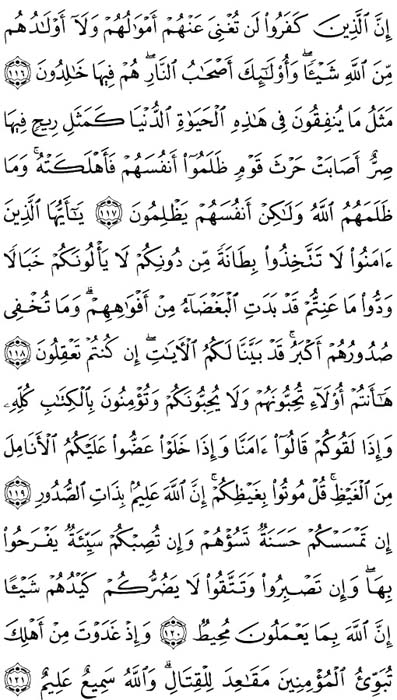 إِنَّ ٱلَّذِينَ كَفَرُوا۟ لَن تُغْنِىَ عَنْهُمْ أَمْوَٰلُهُمْ وَلَآ أَوْلَـٰدُهُم
مِّنَ ٱللَّهِ شَيْـًٔا ۖ وَأُو۟لَـٰٓئِكَ أَصْحَـٰبُ ٱلنَّارِ ۚ هُمْ فِيهَا خَـٰلِدُونَ ١١٦
مَثَلُ مَا يُنفِقُونَ فِى هَـٰذِهِ ٱلْحَيَوٰةِ ٱلدُّنْيَا كَمَثَلِ رِيحٍ فِيهَا
صِرٌّ أَصَابَتْ حَرْثَ قَوْمٍ ظَلَمُوٓا۟ أَنفُسَهُمْ فَأَهْلَكَتْهُ ۚ وَمَا
ظَلَمَهُمُ ٱللَّهُ وَلَـٰكِنْ أَنفُسَهُمْ يَظْلِمُونَ ١١٧ يَـٰٓأَيُّهَا ٱلَّذِينَ
ءَامَنُوا۟ لَا تَتَّخِذُوا۟ بِطَانَةً مِّن دُونِكُمْ لَا يَأْلُونَكُمْ خَبَالًا
وَدُّوا۟ مَا عَنِتُّمْ قَدْ بَدَتِ ٱلْبَغْضَآءُ مِنْ أَفْوَٰهِهِمْ وَمَا تُخْفِى
صُدُورُهُمْ أَكْبَرُ ۚ قَدْ بَيَّنَّا لَكُمُ ٱلْـَٔايَـٰتِ ۖ إِن كُنتُمْ تَعْقِلُونَ ١١٨
هَـٰٓأَنتُمْ أُو۟لَآءِ تُحِبُّونَهُمْ وَلَا يُحِبُّونَكُمْ وَتُؤْمِنُونَ بِٱلْكِتَـٰبِ كُلِّهِۦ
وَإِذَا لَقُوكُمْ قَالُوٓا۟ ءَامَنَّا وَإِذَا خَلَوْا۟ عَضُّوا۟ عَلَيْكُمُ ٱلْأَنَامِلَ
مِنَ ٱلْغَيْظِ ۚ قُلْ مُوتُوا۟ بِغَيْظِكُمْ ۗ إِنَّ ٱللَّهَ عَلِيمٌۢ بِذَاتِ ٱلصُّدُورِ ١١٩
إِن تَمْسَسْكُمْ حَسَنَةٌ تَسُؤْهُمْ وَإِن تُصِبْكُمْ سَيِّئَةٌ يَفْرَحُوا۟
بِهَا ۖ وَإِن تَصْبِرُوا۟ وَتَتَّقُوا۟ لَا يَضُرُّكُمْ كَيْدُهُمْ شَيْـًٔا
إِنَّ ٱللَّهَ بِمَا يَعْمَلُونَ مُحِيطٌ ١٢٠ وَإِذْ غَدَوْتَ مِنْ أَهْلِكَ
تُبَوِّئُ ٱلْمُؤْمِنِينَ مَقَـٰعِدَ لِلْقِتَالِ ۗ وَٱللَّهُ سَمِيعٌ عَلِيمٌ ١٢١